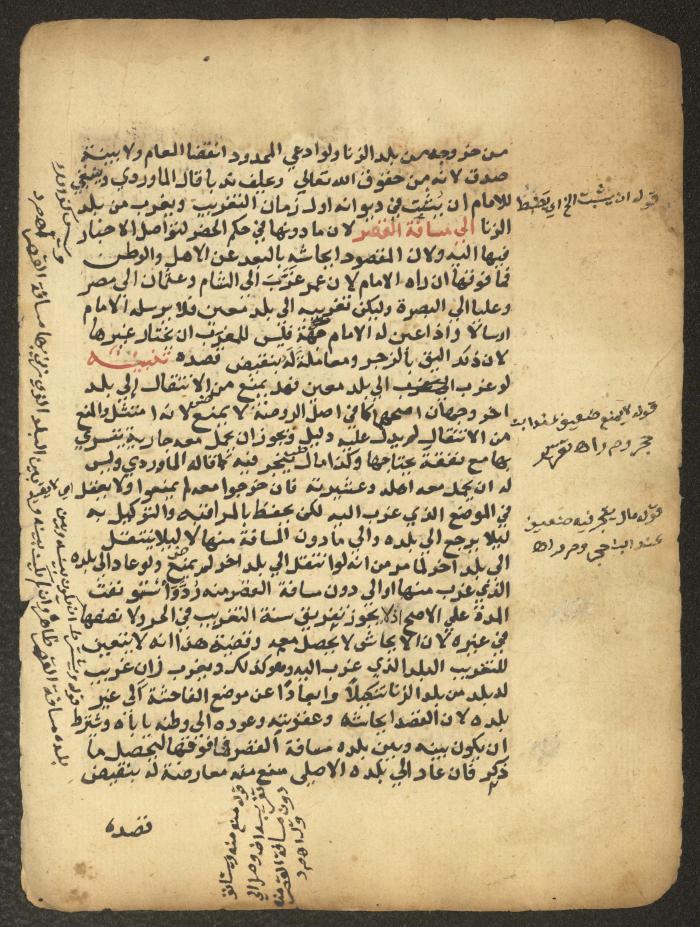 من خروجه من بلد الزنا ولو ادعي المحدود انقضا العام ولا بينة
صدق لانه من حقوق الله تعالي وحلف ندبا قال الماوردي وينبغي
للامام ان يثبت في ديوانه اول زمان التغريب ويغرب من بلد
الزنا الي مسافة القصر لان ما دونها في حكم الحضر لتواصل الاخبار
فيها اليه ولان المقصود ايحاشه بالبعد عن الاهل والوطن
فما فوقها ان راه الامام لان عمر غرب الي الشام وعثمان الي مصر
وعليا الي البصرة وليكن تغريبه الي بلد معين فلا يرسله الامام
ارسالا واذا عين له الامام جهة فليس للمغرب ان يختار غيرها
لان ذلك اليق بالزجر ومعاملة له بنقيض قصده تنبيه
لو غرب الي بلد معين فهل يمنع من الانتقال الي بلد
اخر وجهان اصحهما كما في اصل الروضة لا يمنع لانه امتثل والمنع
من الانتقال لم يدل عليه دليل ويجوز ان يحمل معه جارية يتسري
بها مع نفقة يحتاجها وكذا مال يتجر فيه كما قاله الماوردي وليس
له ان يحمل معه اهله وعشيرته فان خرجوا معه لم يمنعوا ولا يعقل
في الموضع الذي غرب اليه لكن يحفظ بالمراقبة والتوكيل به
ليلا يرجع الي بلده والي ما دون المسافة منها لا ليلا ينتقل
الي بلد اخر لما مر من انه لو انتقل الي بلد اخر لم يمنع ولو عاد الي بلده
الذي غرب منها او الي دون مسافة القصر منه رد واستونفت
المدة علي الاصح اذ لا يجوز تفريق سنة التغريب في الحر ولا نصفها
في غيره لان الايحاش لا يحصل معه وقضية هذا انه لا يتعين
للتغريب البلد الذي غرب اليه وهو كذلك ويغرب زان غريب
له بلد من بلد الزنا تنكيلا وابعادا عن موضع الفاحشة الي غير
بلده لان القصد ايحاشه وعقوبته وعوده الي وطنه ياباه ويشترط
ان يكون بينه وبين بلده مسافة القصر فما فوقها ليحصل ما
ذكر فان عاد الي بلده الاصلي منع منه معارضة له بنقيض
قصده
قوله ان يثبت الخ اي
قوله لا يمنع ضعيف
قوله مال يتجر فيه ضعيف
قوله منع منه
دون مسافة القصر منه